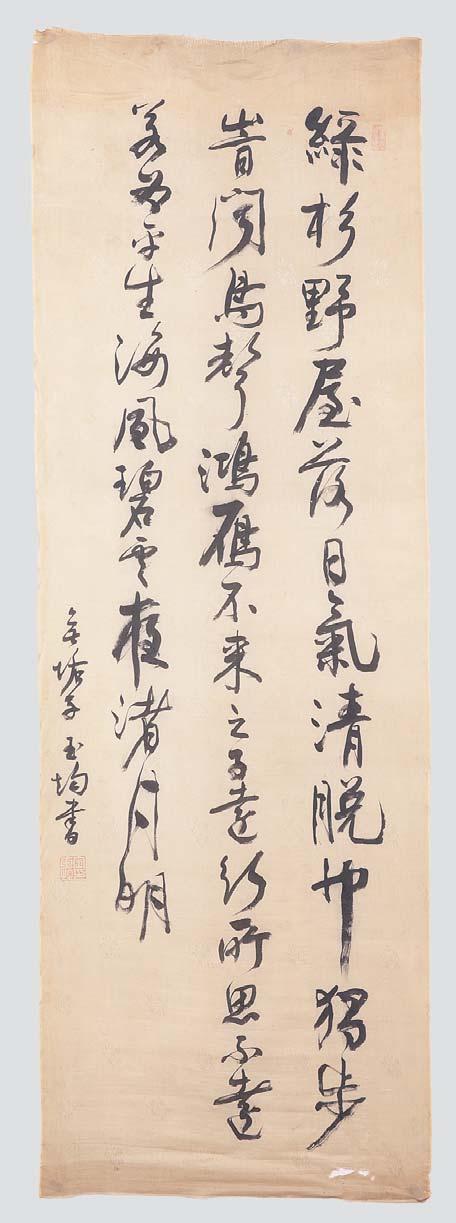 綠杉野屋落日氣清脫巾獨步
時聞鳥聲鴻雁不來之子遠行所思不遠
若為平生海風碧雲夜渚月明
玉均書